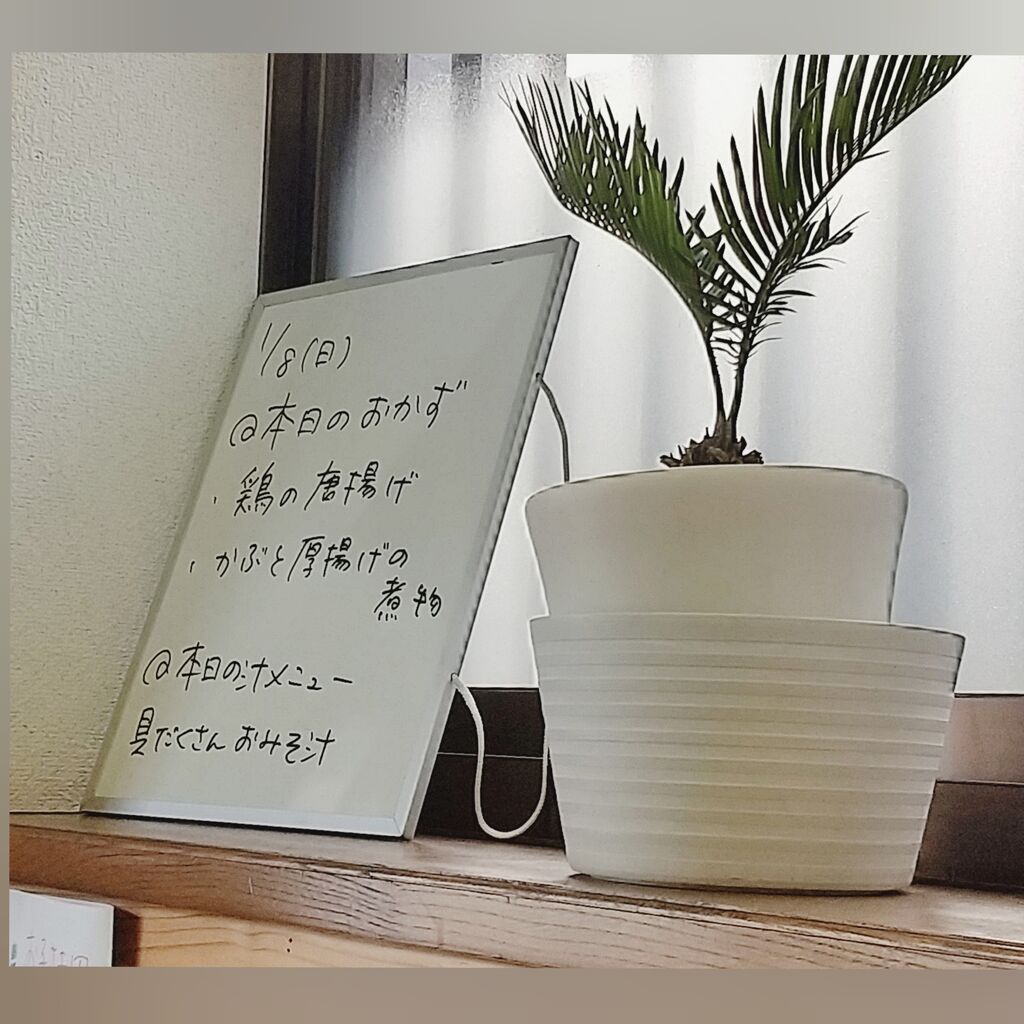 1/8(日)
@本日のおかず
・鶏の唐揚げ
・かぶと厚揚げの
煮物
@本日の汁メニュー
具だくさんおみそ汁